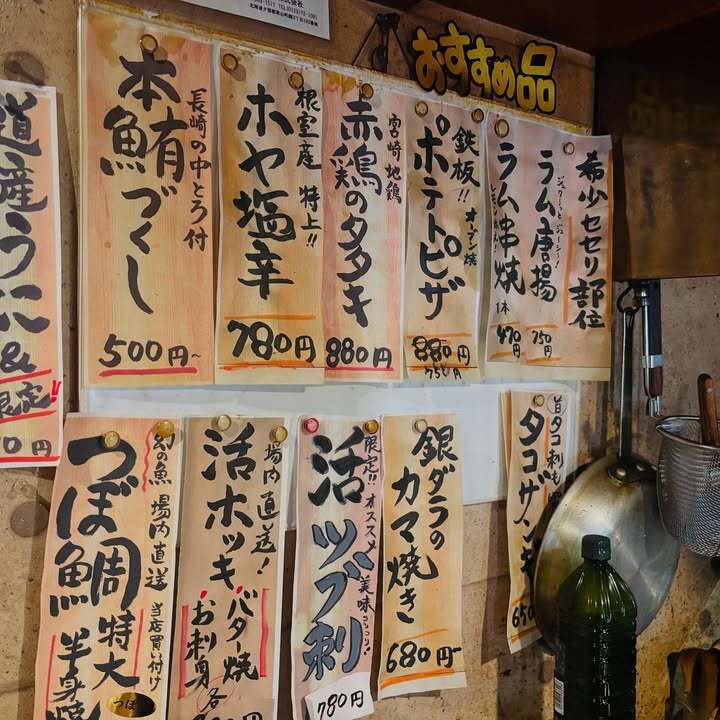 おすすめ品
希少セセリ部位
ラム唐揚
ジューシー!
750円
ラム串焼
1本
470円
鉄板!!
オーブン焼
ポテトピザ
880円
750円
宮崎地鶏
赤鶏のタタキ
880円
根室産 特上!!
ホヤ塩辛
780円
長崎の中とろ付
本鮪づくし
500円~
道産うに&
限定!!
0円
昔タコ刺も
タコザンギ
650
銀ダラの
カマ焼き
680円~
限定!! オススメ 美味
活ツブ刺
780円
場内直送!
活ホッキ
バター焼
お刺身
各
幻の魚 場内直送 当店買い付け
つぼ鯛
特大
半身焼
つぼ